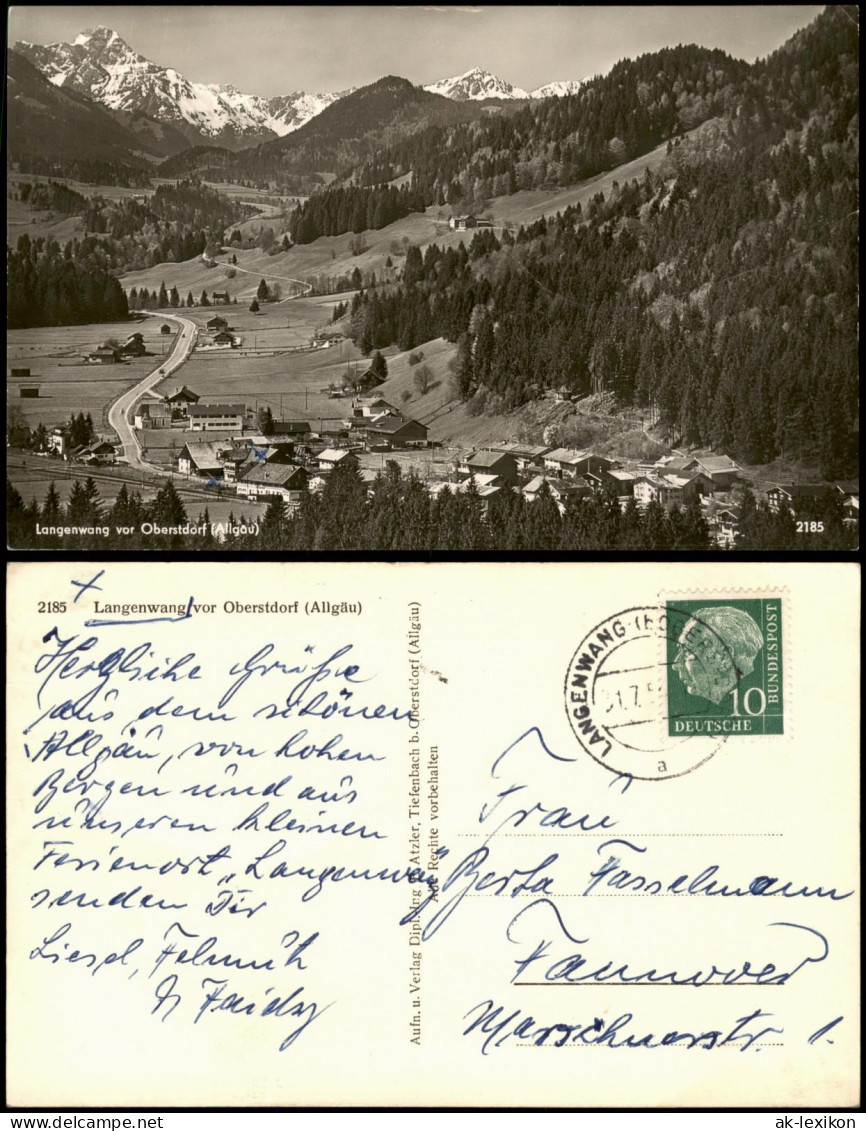 Langenwang vor Oberstdorf (Allgäu)
2185
2185 Langenwang vor Oberstdorf (Allgäu)
Herzliche Grüße
aus dem schönen
Allgäu, von hohen
Bergen und aus
unseren kleinen
Ferienort „Langenwang“
senden Dir
Liesel, Helmuth
Aufn. u. Verlag Dipl. Ing. Atzler, Tiefenbach b. Oberstdorf (Allgäu)
Alle Rechte vorbehalten
LANGENWANG
a
10
DEUTSCHE
BUNDESPOST
Frau
Berta Hasselmann
Hannover
Marschnerstr. 1.
ak-lexikon